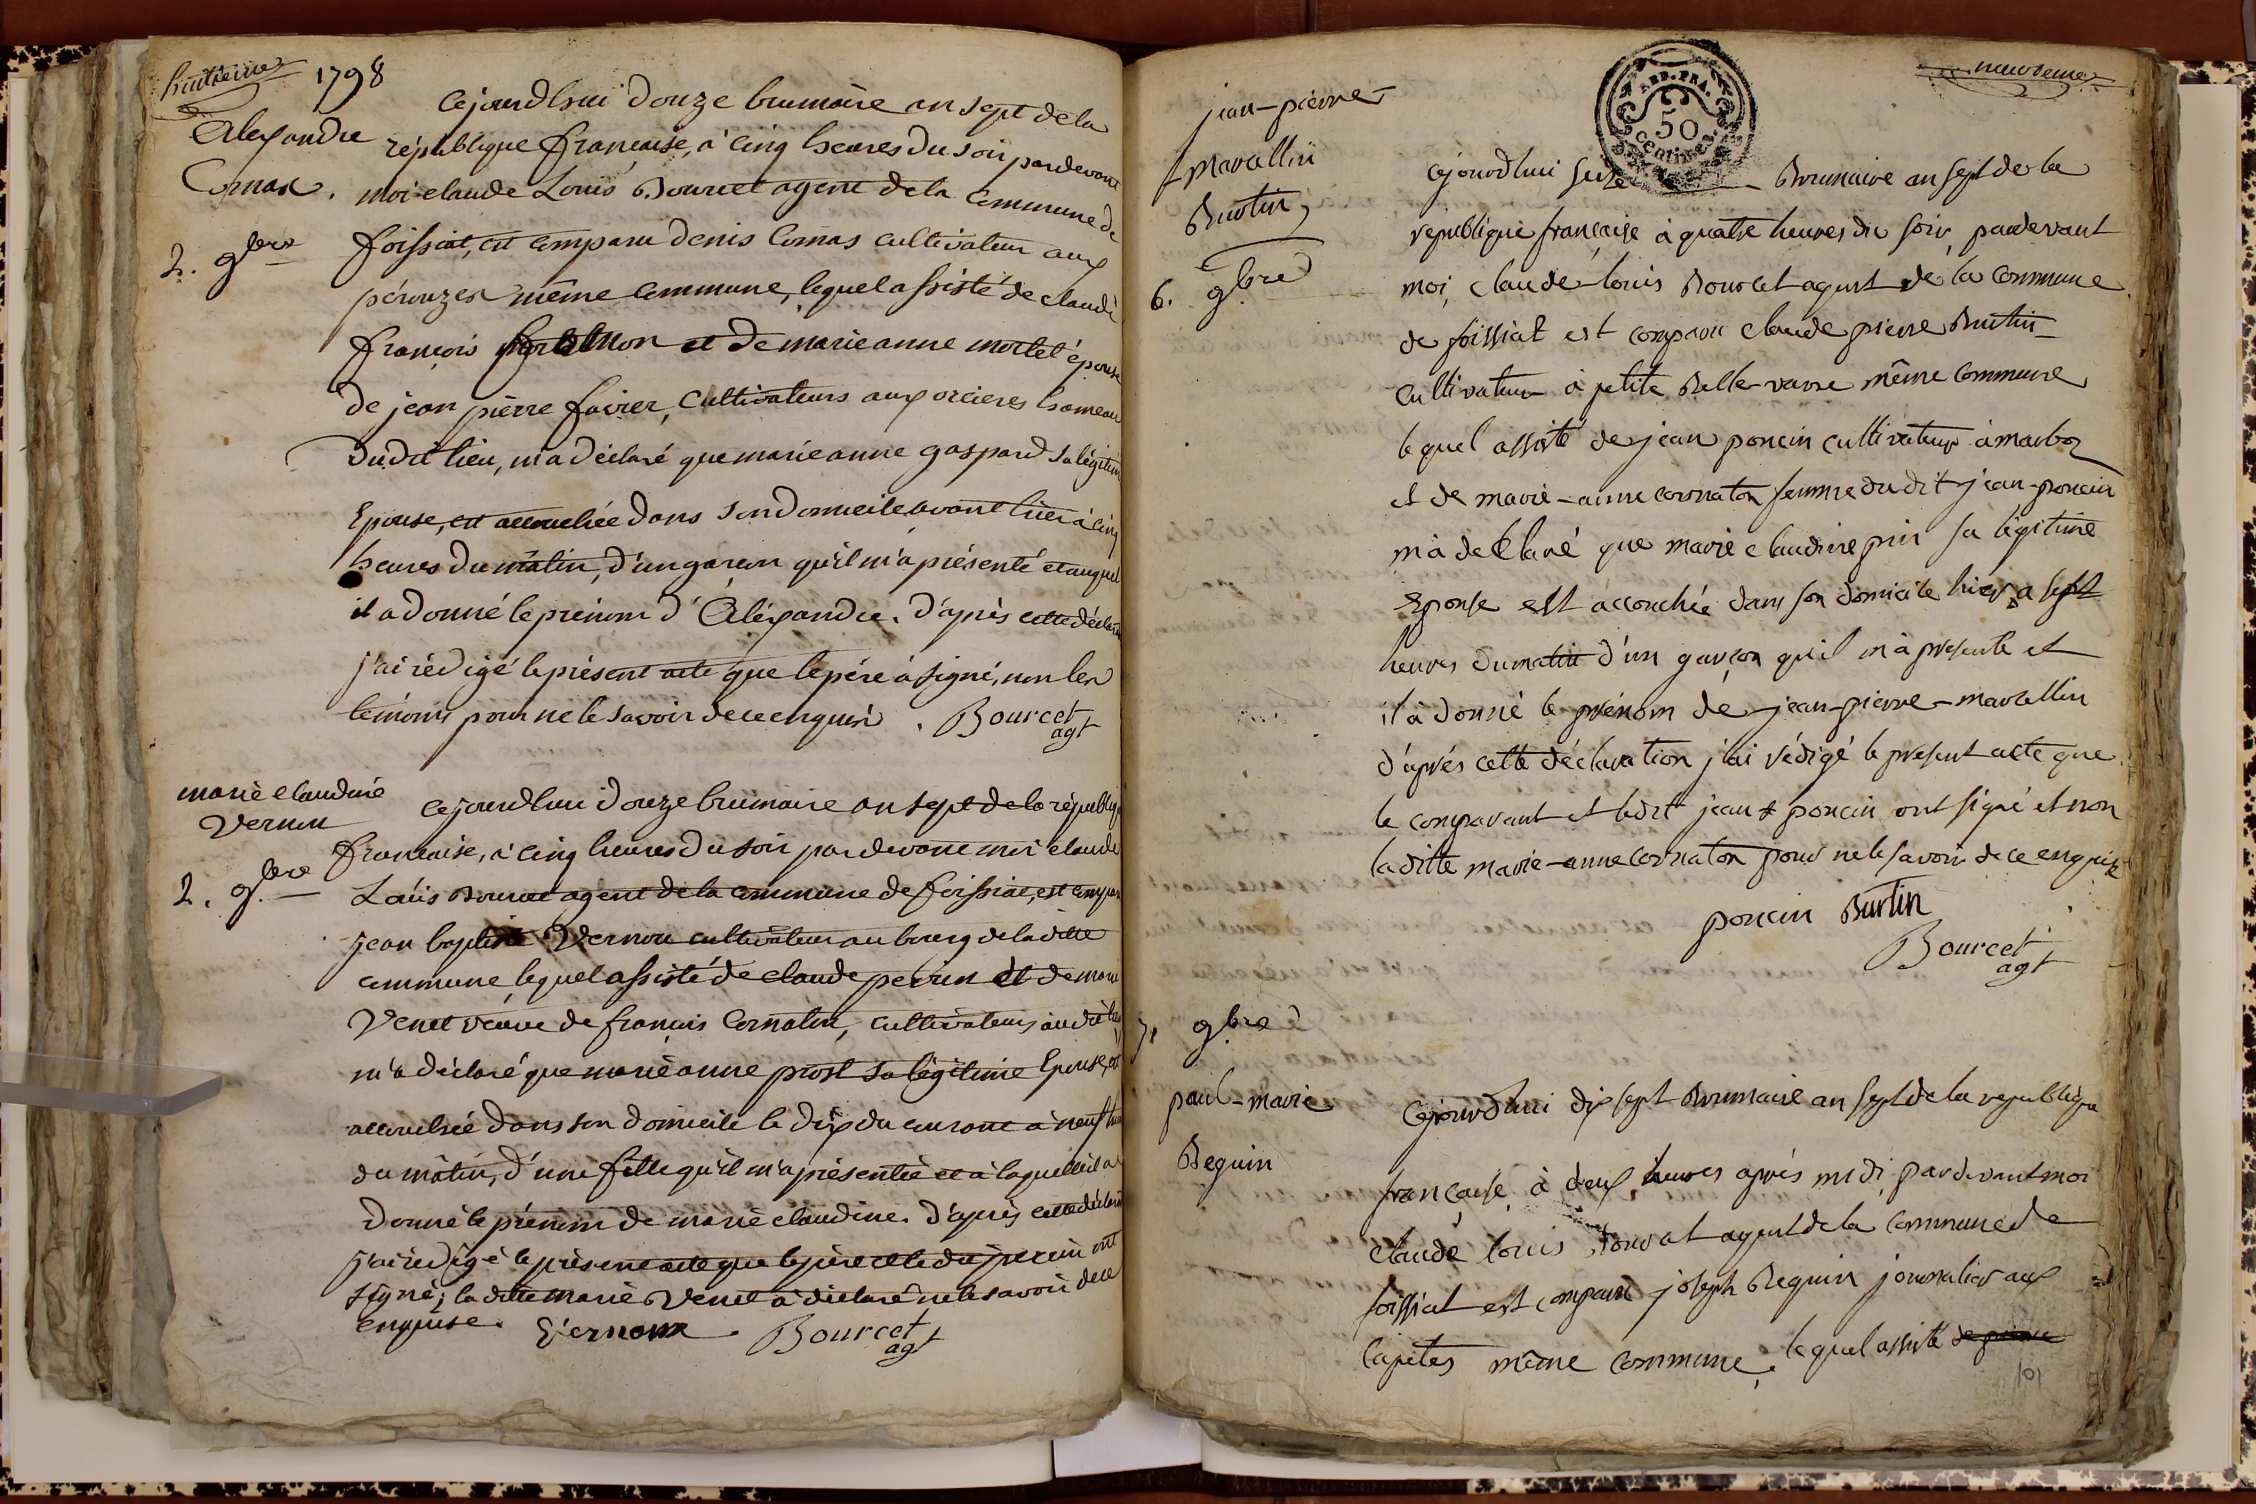 huitieme 1798
Alexandre
Comas.
2. 9bre
Cejourdhui douze brumaire an sept de la
république française, à cinq heures du soir pardevant
moi claude Louis Bourcet agent de la Commune de
foissiat, est comparu denis Comas cultivateur aux
pérouzes même commune, lequel assisté de claude
françois mon et de marie anne mortel épouse
de jean pierre favier, cultivateurs aux orcieres hameau
dudit lieu, m'a déclaré que marie anne gaspard sa légitime
Epouse, est accouchée dans son domicile avant hier à cinq
heures du matin, d'un garçon qu'il m'a présenté et auquel
il a donné le prénom d'Aléxandre. d'après cette déclaration
j'ai rédigé le présent acte que le père à signé, non les
témoins pour ne le savoir de ce enquis. Bourcet
agt
marie claudine
Vernou
2. 9bre
Cejourdhui douze brumaire an sept de la républiq
francaise, à cinq heures du soir pardevant moi claude
Louis Bourcet agent de la commune de foissiat, est comparu
jean baptiste Vernou cultivateur au bourg de la ditte
commune lequel assisté de claude perrin et de marie
Venet veuve de françois Cornaton, cultivateurs audit lieu
m'a déclaré que marie anne prost sa légitime Epouse, est
accouchée dans son domicile le dix du courant à neuf heu
du matin, d'une fille qu'il m'a présentée et à laquelle il a
donné le prénom de marie claudine. d'après cette déclarat
j'ai rédigé le présent acte que le père et le dit perrin ont
signé; la ditte marie Venet à déclaré ne le savoir de ce
enquise. Vernoux. Bourcet
agt
neuvieme
REP. FRA.
50
centimes
jean-pierre
Marcellin
Burtin
6. 9bre
Cejourdhui seize Brumaire an sept de la
république française à quatre heures du soir, pardevant
moi, claude louis Bourcet agent de la commune
de foissiat est comparu claude pierre Burtin
cultivateur à petite Belle-varre même commune
lequel assisté de jean poncin cultivateur à marboz
et de marie-anne cornaton femme dudit jean-poncin
m'à déclaré que marie claudine pin sa légitime
Epouse est accouchée dans son domicile hier, a sept
heures du matin d'un garçon qu'il m'à presenté et
il à donné le prénom de jean-pierre-marcellin
d'aprés cette déclaration j'ai rédigé le present acte que
le comparant et ledit jean poncin ont signé et non
laditte marie-anne cornaton pour ne le savoir de ce enquise
poncin Burtin
Bourcet
agt
7. 9bre
paul-marie
Beguin
Cejourdhui dix sept Brumaire an sept de la republique
française à deux heures aprés midi, pardevant moi
claude louis Bourcet agent de la commune de
foissiat est comparu joseph Beguin journalier aux
Capetes même commune, lequel assisté de pierre
101